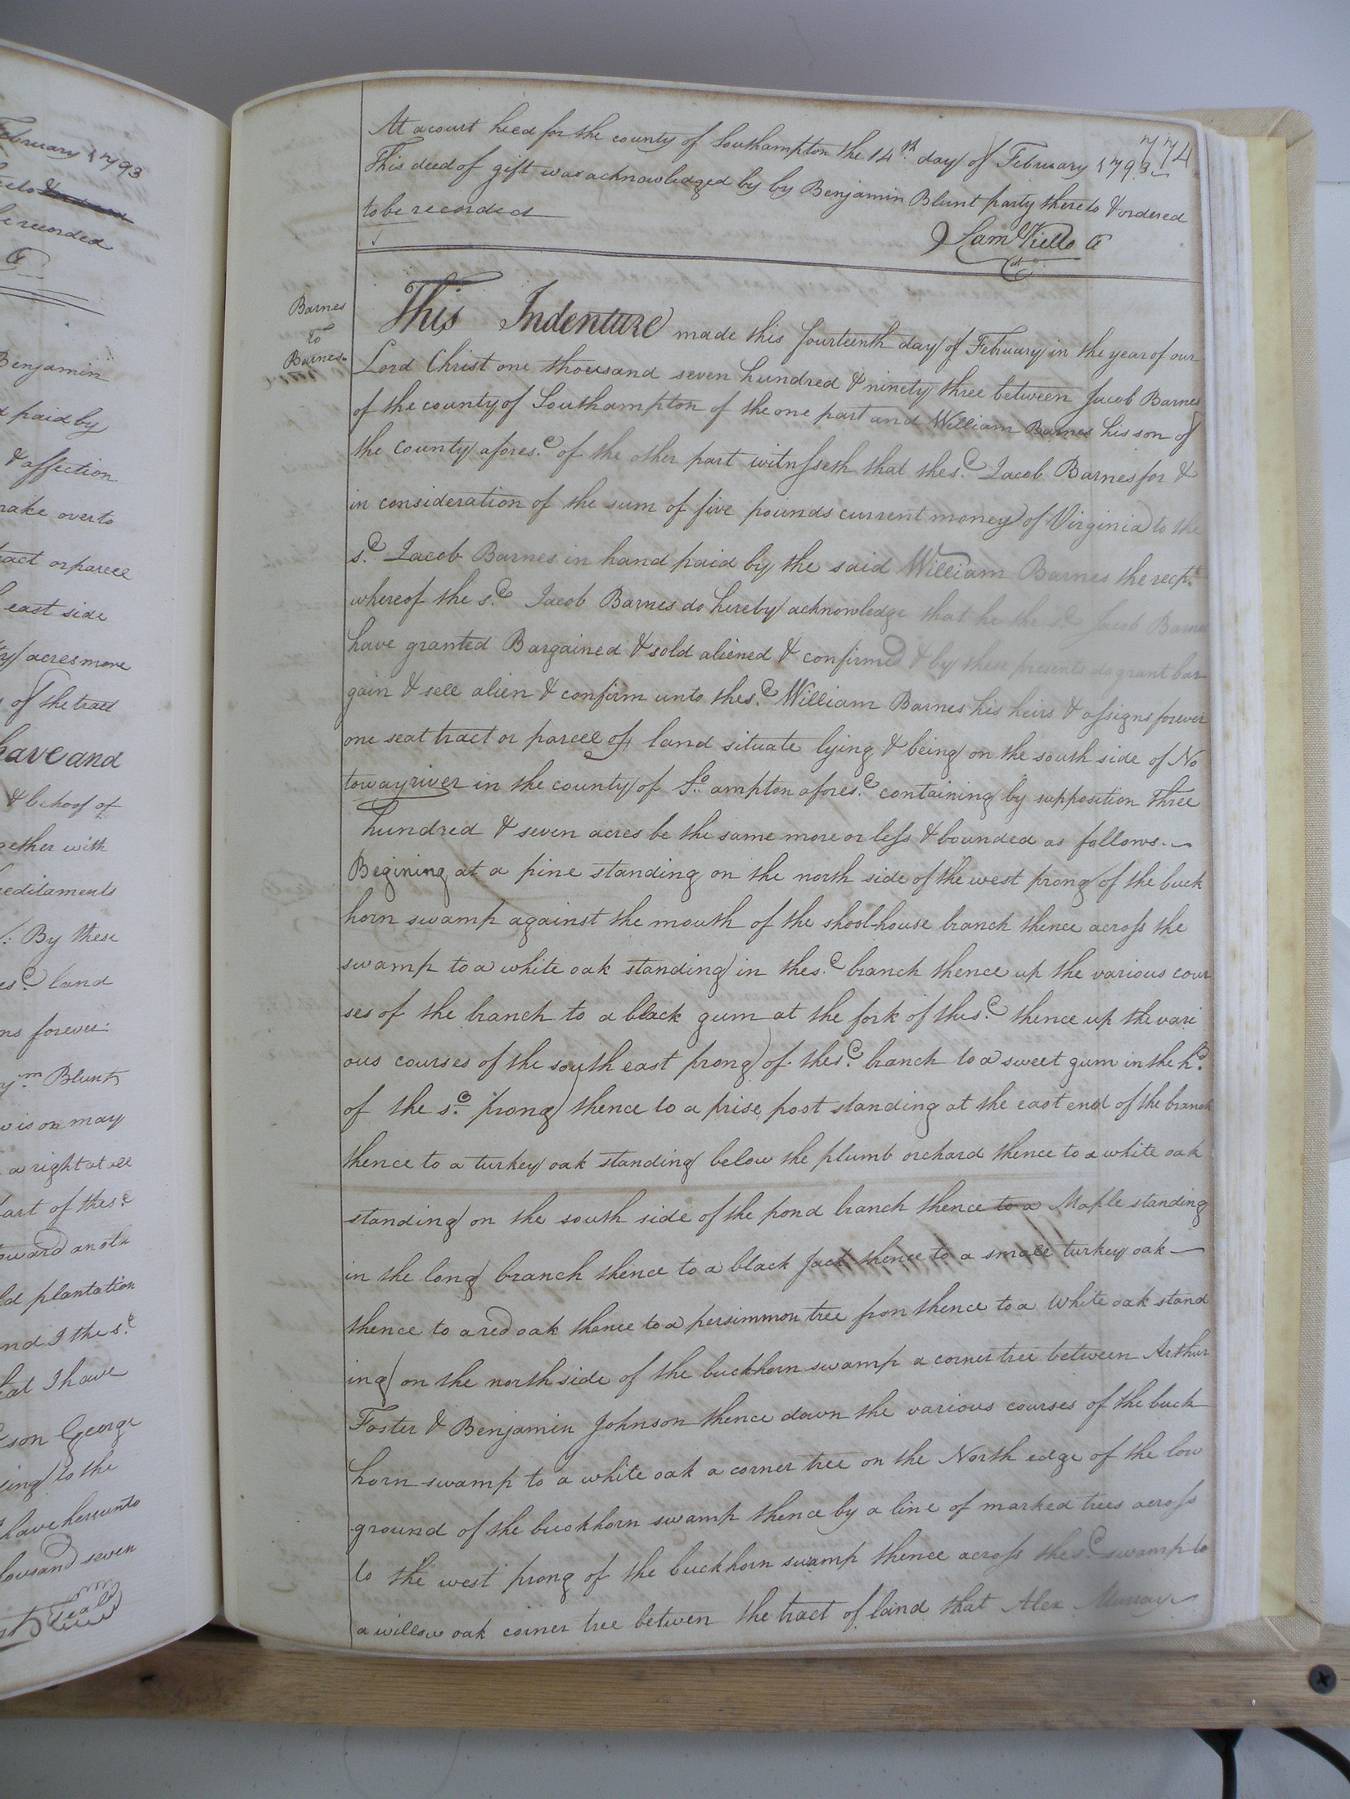 February 1793
be recorded
Benjamin
paid by
& affection
make over to
tract or parcell
east side
acres more
of the tract
have and
& behoof of
together with
hereditaments
By these
land
forever
Blunt
may
a right at all
part of the s.d
plantation
and I the s.d
that I have
son George
to the
have hereunto
thousand seven
Seal
774
At a court held for the county of Southampton the 14th day of February 1793
This deed of gift was acknowledged by by Benjamin Blunt party thereto & ordered
to be recorded
Saml Kello
Barnes
to
Barnes
This Indenture made this fourteenth day of February in the year of our
Lord Christ one thousand seven hundred & ninety three between Jacob Barnes
of the county of Southampton of the one part and William Barnes his son of
the county afores.d of the other part witnesseth that the s.d Jacob Barnes for &
in consideration of the sum of five pounds current money of Virginia to the
s.d Jacob Barnes in hand paid by the said William Barnes the recpt
whereof the s.d Jacob Barnes do hereby acknowledge that he the s.d Jacob Barnes
have granted Bargained & sold aliened & confirmed & by these presents do grant bar
gain & sell alien & confirm unto the s.d William Barnes his heirs & assigns forever
one seat tract or parcel of land situate lying & being on the south side of No
toway river in the county of So ampton afores.d containing by supposition Three
hundred & seven acres be the same more or less & bounded as follows.
Begining at a pine standing on the north side of the west prong of the buck
horn swamp against the mouth of the shool-house branch thence across the
swamp to a white oak standing in the s.d branch thence up the various cour
ses of the branch to a black gum at the fork of the s.d thence up the vari
ous courses of the south east prong of the s.d branch to a sweet gum in the h.d
of the s.d prong thence to a prise post standing at the east end of the branch
thence to a turkey oak standing below the plumb orchard thence to a white oak
standing on the south side of the pond branch thence to a Maple standing
in the long branch thence to a black jack thence to a small turkey oak
thence to a red oak thence to a persimmon tree from thence to a White oak stand
ing on the north side of the buckhorn swamp a corner tree between Arthur
Foster & Benjamin Johnson thence down the various courses of the buck
horn swamp to a white oak a corner tree on the North edge of the low
ground of the buckhorn swamp thence by a line of marked trees across
to the west prong of the buckhorn swamp thence across the s.d swamp to
a willow oak corner tree betwen the tract of land that Alex Murray